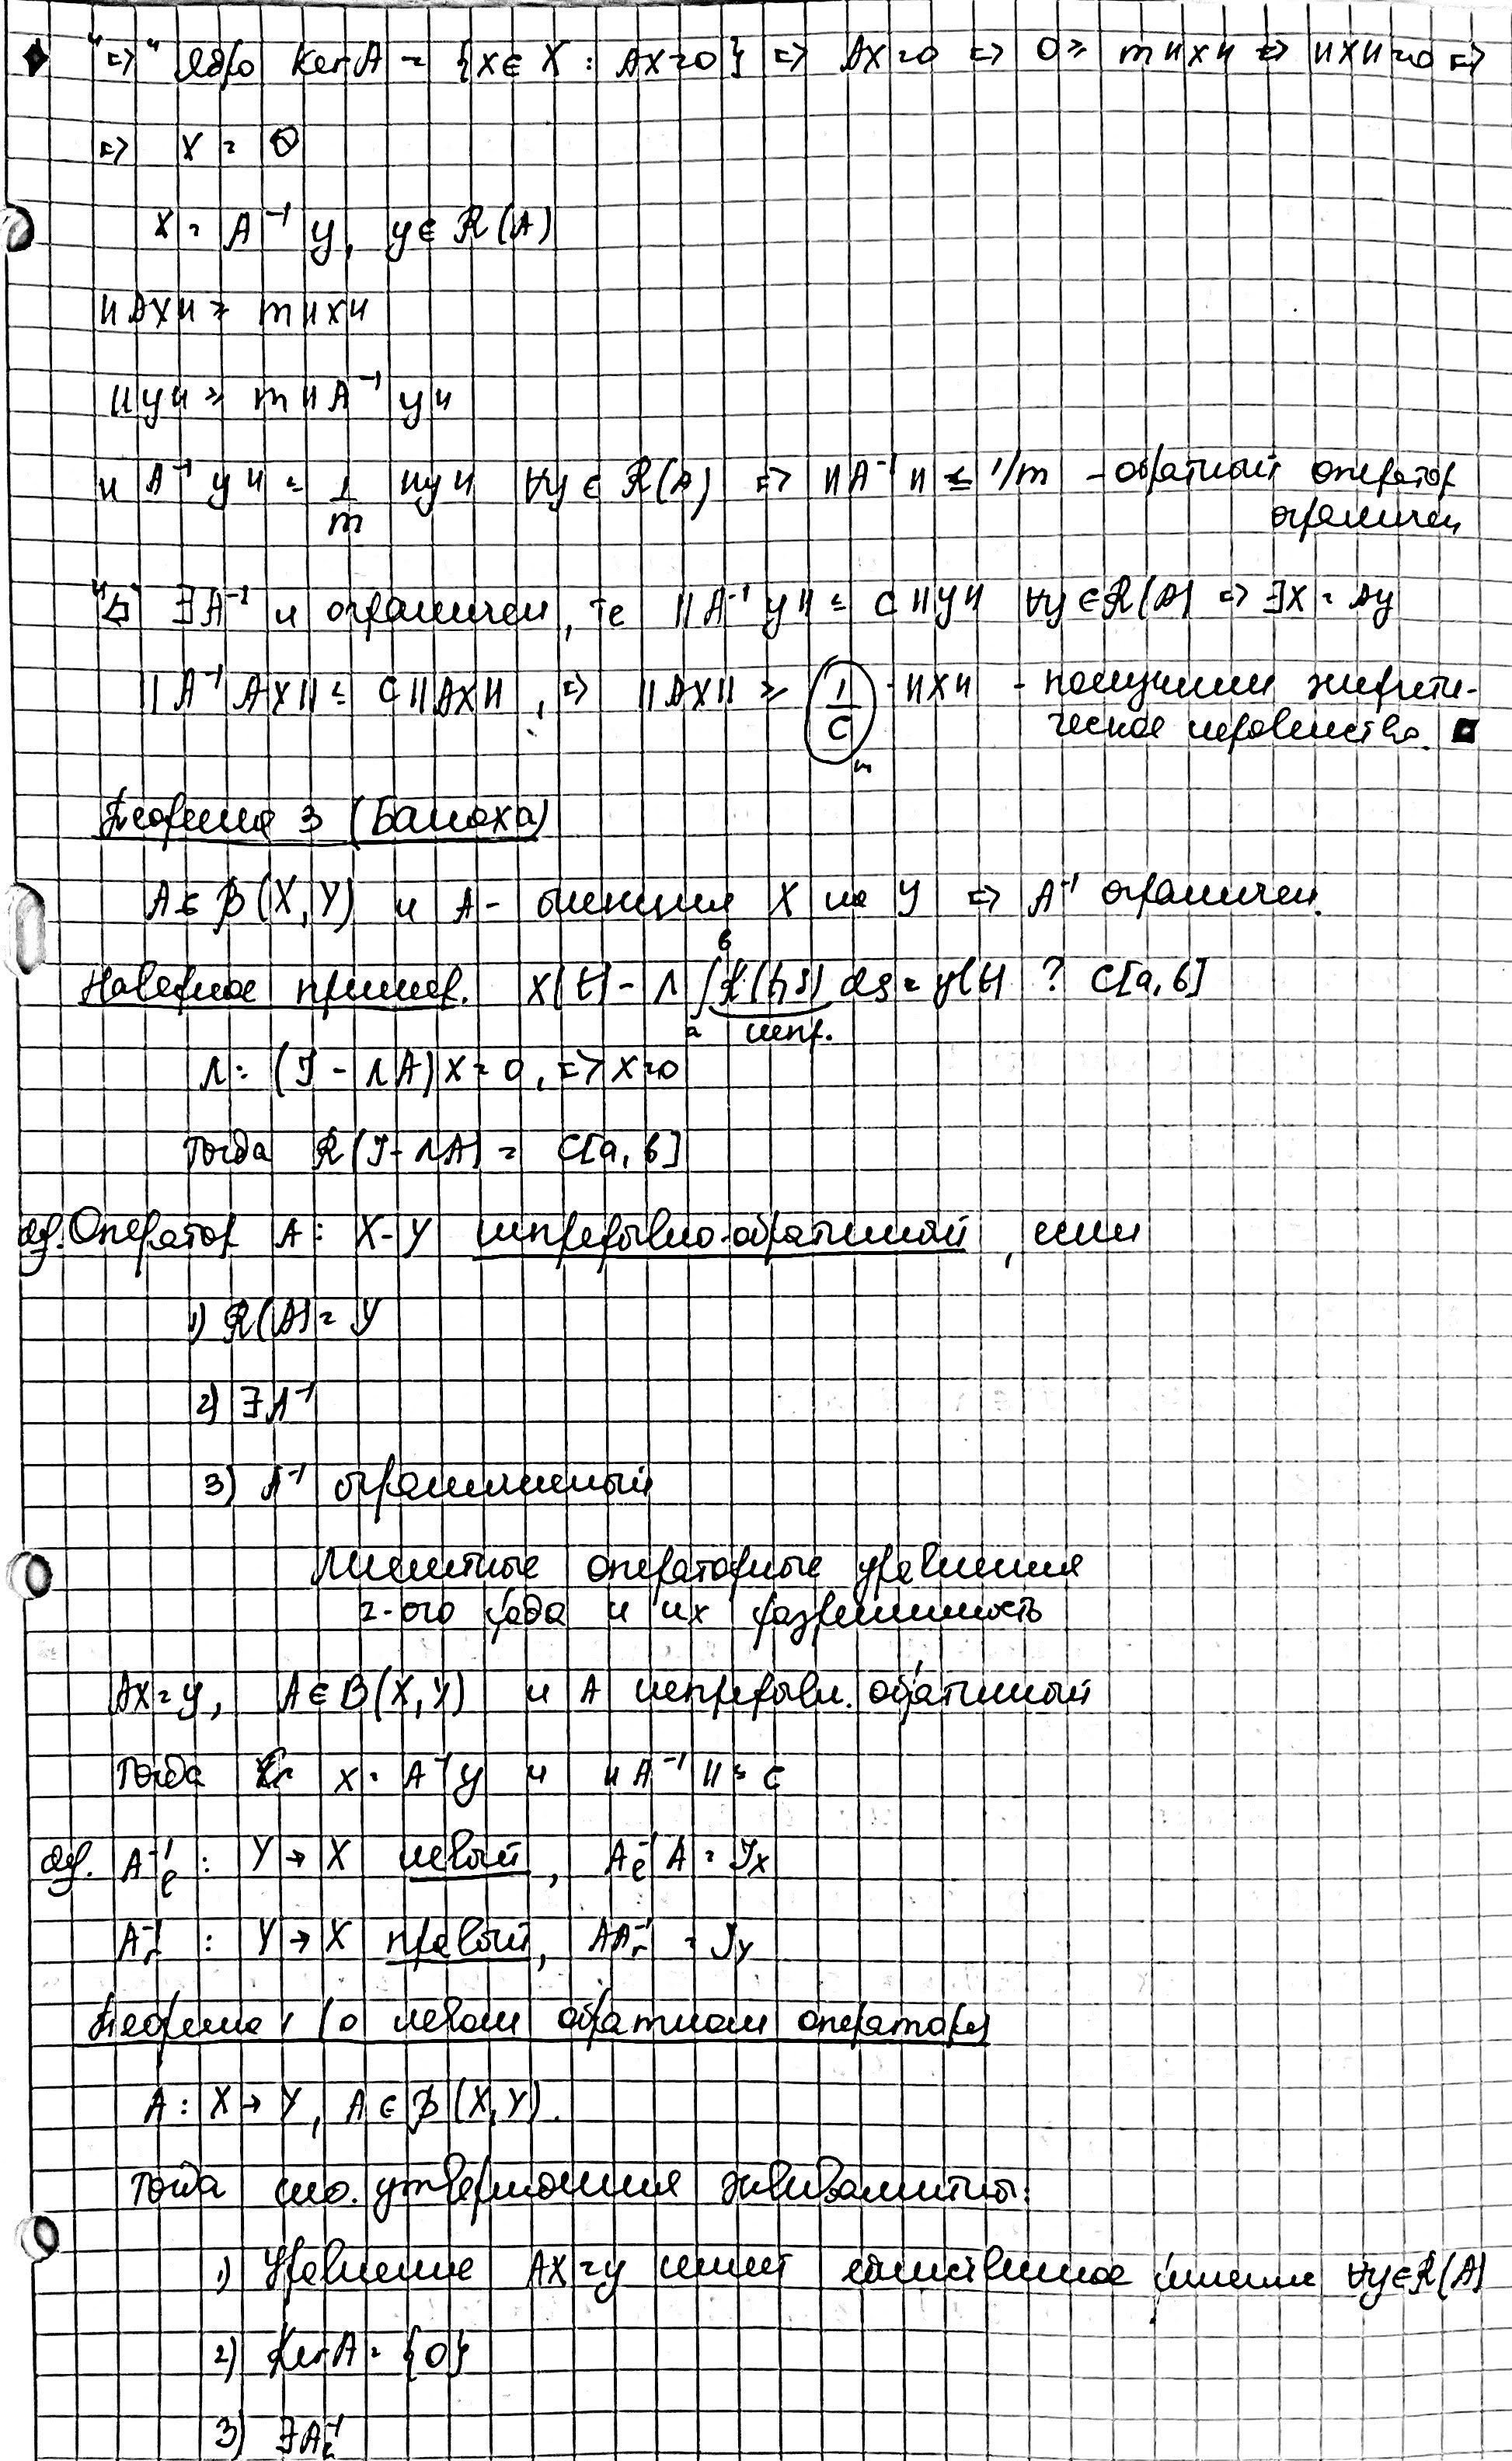 "=>" Ядро Ker A = {x ∈ X : Ax=0} => Ax=0 => 0 ≥ m||x|| => ||x||=0 =>
=> x = θ
x = A⁻¹y, y ∈ R(A)
||Ax|| ≥ m||x||
||y|| ≥ m||A⁻¹y||
||A⁻¹y|| ≤ 1/m ||y|| ∀y ∈ R(A) => ||A⁻¹|| ≤ 1/m - обратный оператор
ограничен
"<=" ∃A⁻¹ и ограничен, те ||A⁻¹y|| ≤ C||y|| ∀y ∈ R(A) => ∃x = Ay
||A⁻¹Ax|| ≤ C||Ax||, => ||Ax|| ≥ 1/C · ||x|| - получили энергети-
m
ческое неравенство. ■
Теорема 3 (Банаха)
A ∈ B(X, Y) и A - биекция X на Y => A⁻¹ ограничен.
Наверное пример. x(t) - λ ∫ₐᵇ K(t,s) ds = y(t) ? C[a, b]
непр.
λ: (J - λA)x = 0, => x=0
Тогда R(J-λA) = C[a, b]
def. Оператор A: X-Y непрерывно-обратимый, если
1) R(A) = Y
2) ∃A⁻¹
3) A⁻¹ ограниченный
Линейные операторные уравнения
2-ого рода и их разрешимость
Ax=y, A ∈ B(X, Y) и A непрерывн. обратимый
Тогда x = A⁻¹y и ||A⁻¹|| ≤ c
def. Aₗ⁻¹ : Y → X левый, Aₗ⁻¹A = Jₓ
Aᵣ⁻¹ : Y → X правый, AAᵣ⁻¹ = J_Y
Теорема 1 (о левом обратном операторе)
A : X → Y, A ∈ B(X, Y).
Тогда след. утверждения эквивалентны:
1) Уравнение Ax=y имеет единственное решение ∀y∈R(A)
2) Ker A = {0}
3) ∃Aₗ⁻¹